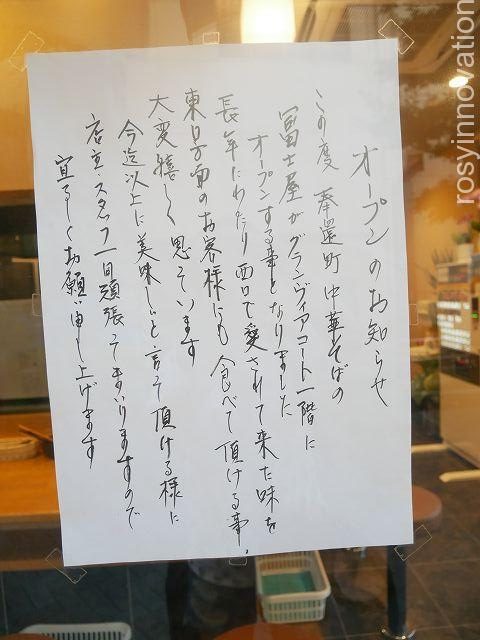 オープンのお知らせ
この度 奉還町 中華そばの
冨士屋がグランヴィアコート一階に
オープンする事となりました
長年にわたり西口で愛されて来た味を
東口方面のお客様にも食べて頂ける事、
大変嬉しく思っています
今迄以上に美味しいと言って頂ける様に
店主・スタッフ一同頑張ってまいりますので
宜しくお願い申し上げます
rosyinnovation